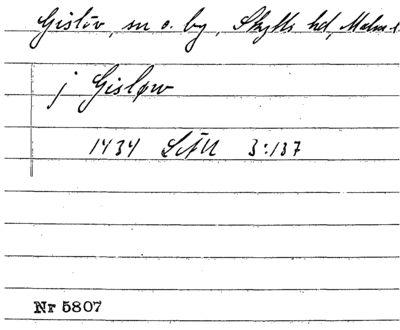 Gislöv, sn o. by, Skytts hd, Malm. l.
j Gisløw
1434 LÄU 3:137
Nr 5807